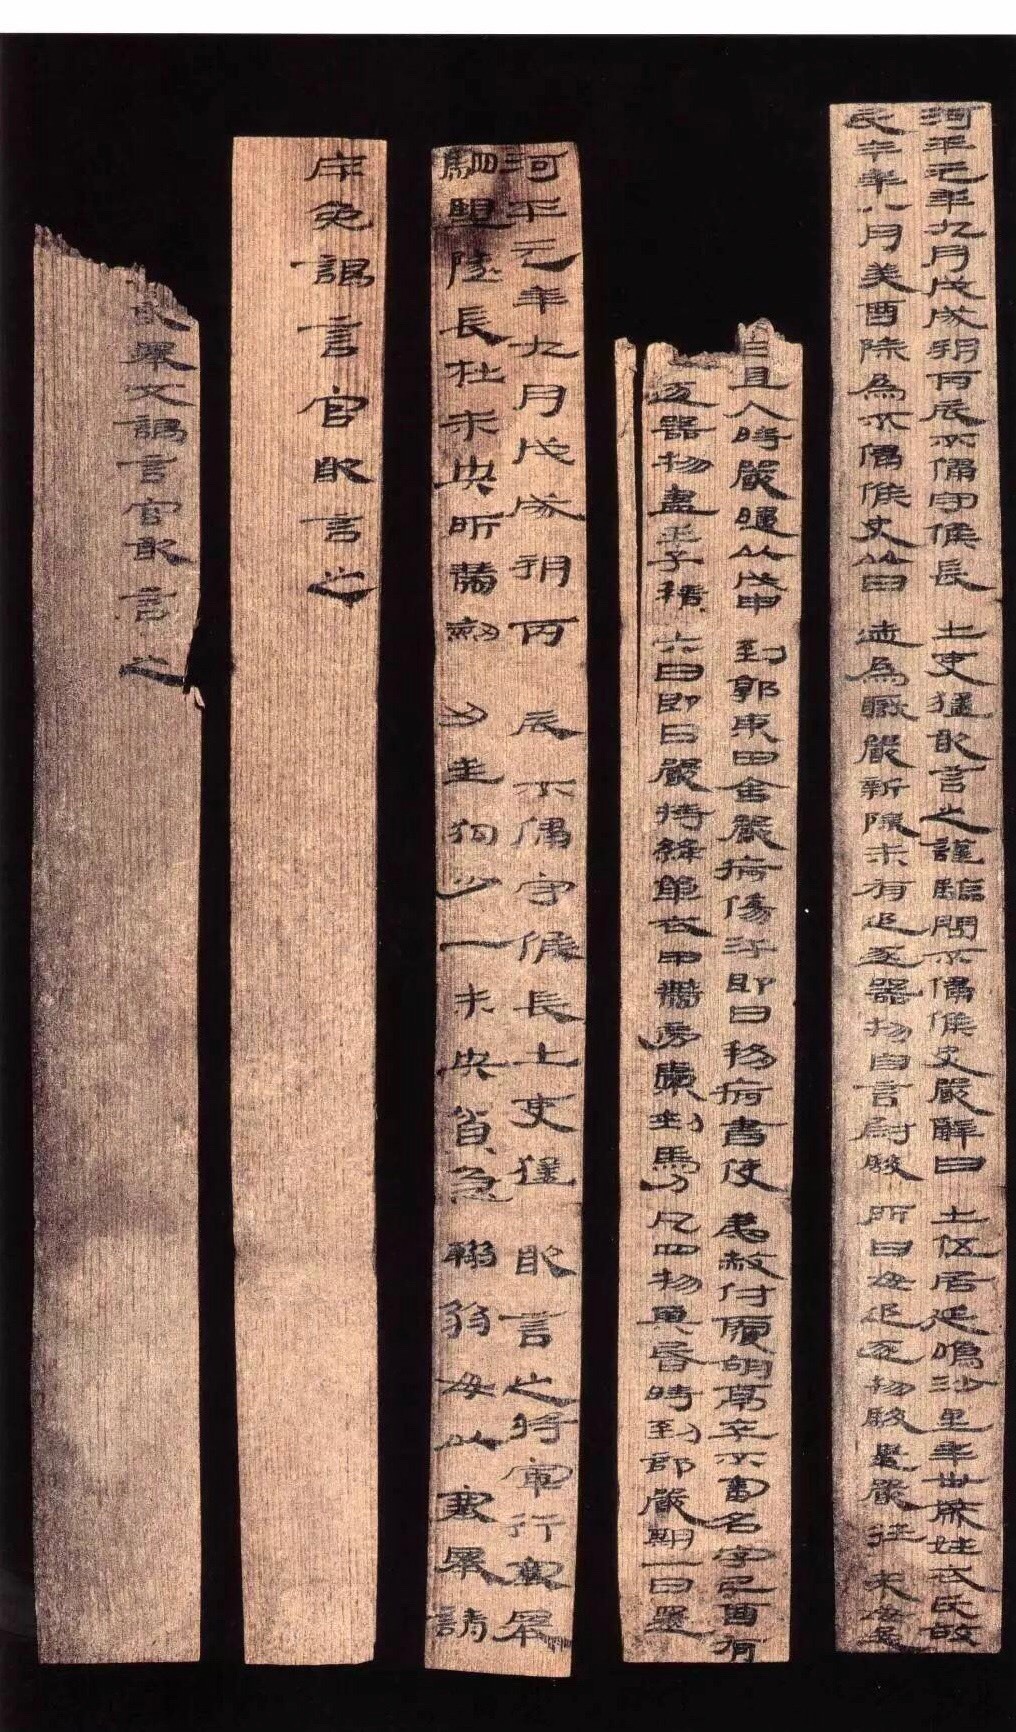 河平元年九月戊戌朔丙辰不侵守候長士吏猛敢言之謹驗問不侵候史嚴辭曰士伍居延鳴沙里年卅歲姓衣氏故
民今年八月癸酉除為不侵候史以日迹為職嚴新除未有追逐器物自言尉駿所曰毋追逐物駿遣嚴往來毋過
日且入時嚴歸以戊申到郭東田舍嚴病傷汗即日移病書使弟赦付覆胡亭卒不審名字己酉有
逐器物盡壬子積六日即日嚴持絳單衣甲帶旁橐刺馬刀凡四物其昏時到部嚴期一日還
河平元年九月戊戌朔丙辰不侵守候長士吏猛敢言之將軍行塞舉
駟望隧長杜未央所帶劍刃生狗少一未央貧急軟弱毋以塞舉請
斥免謁言官敢言之
舉文謁言官敢言之